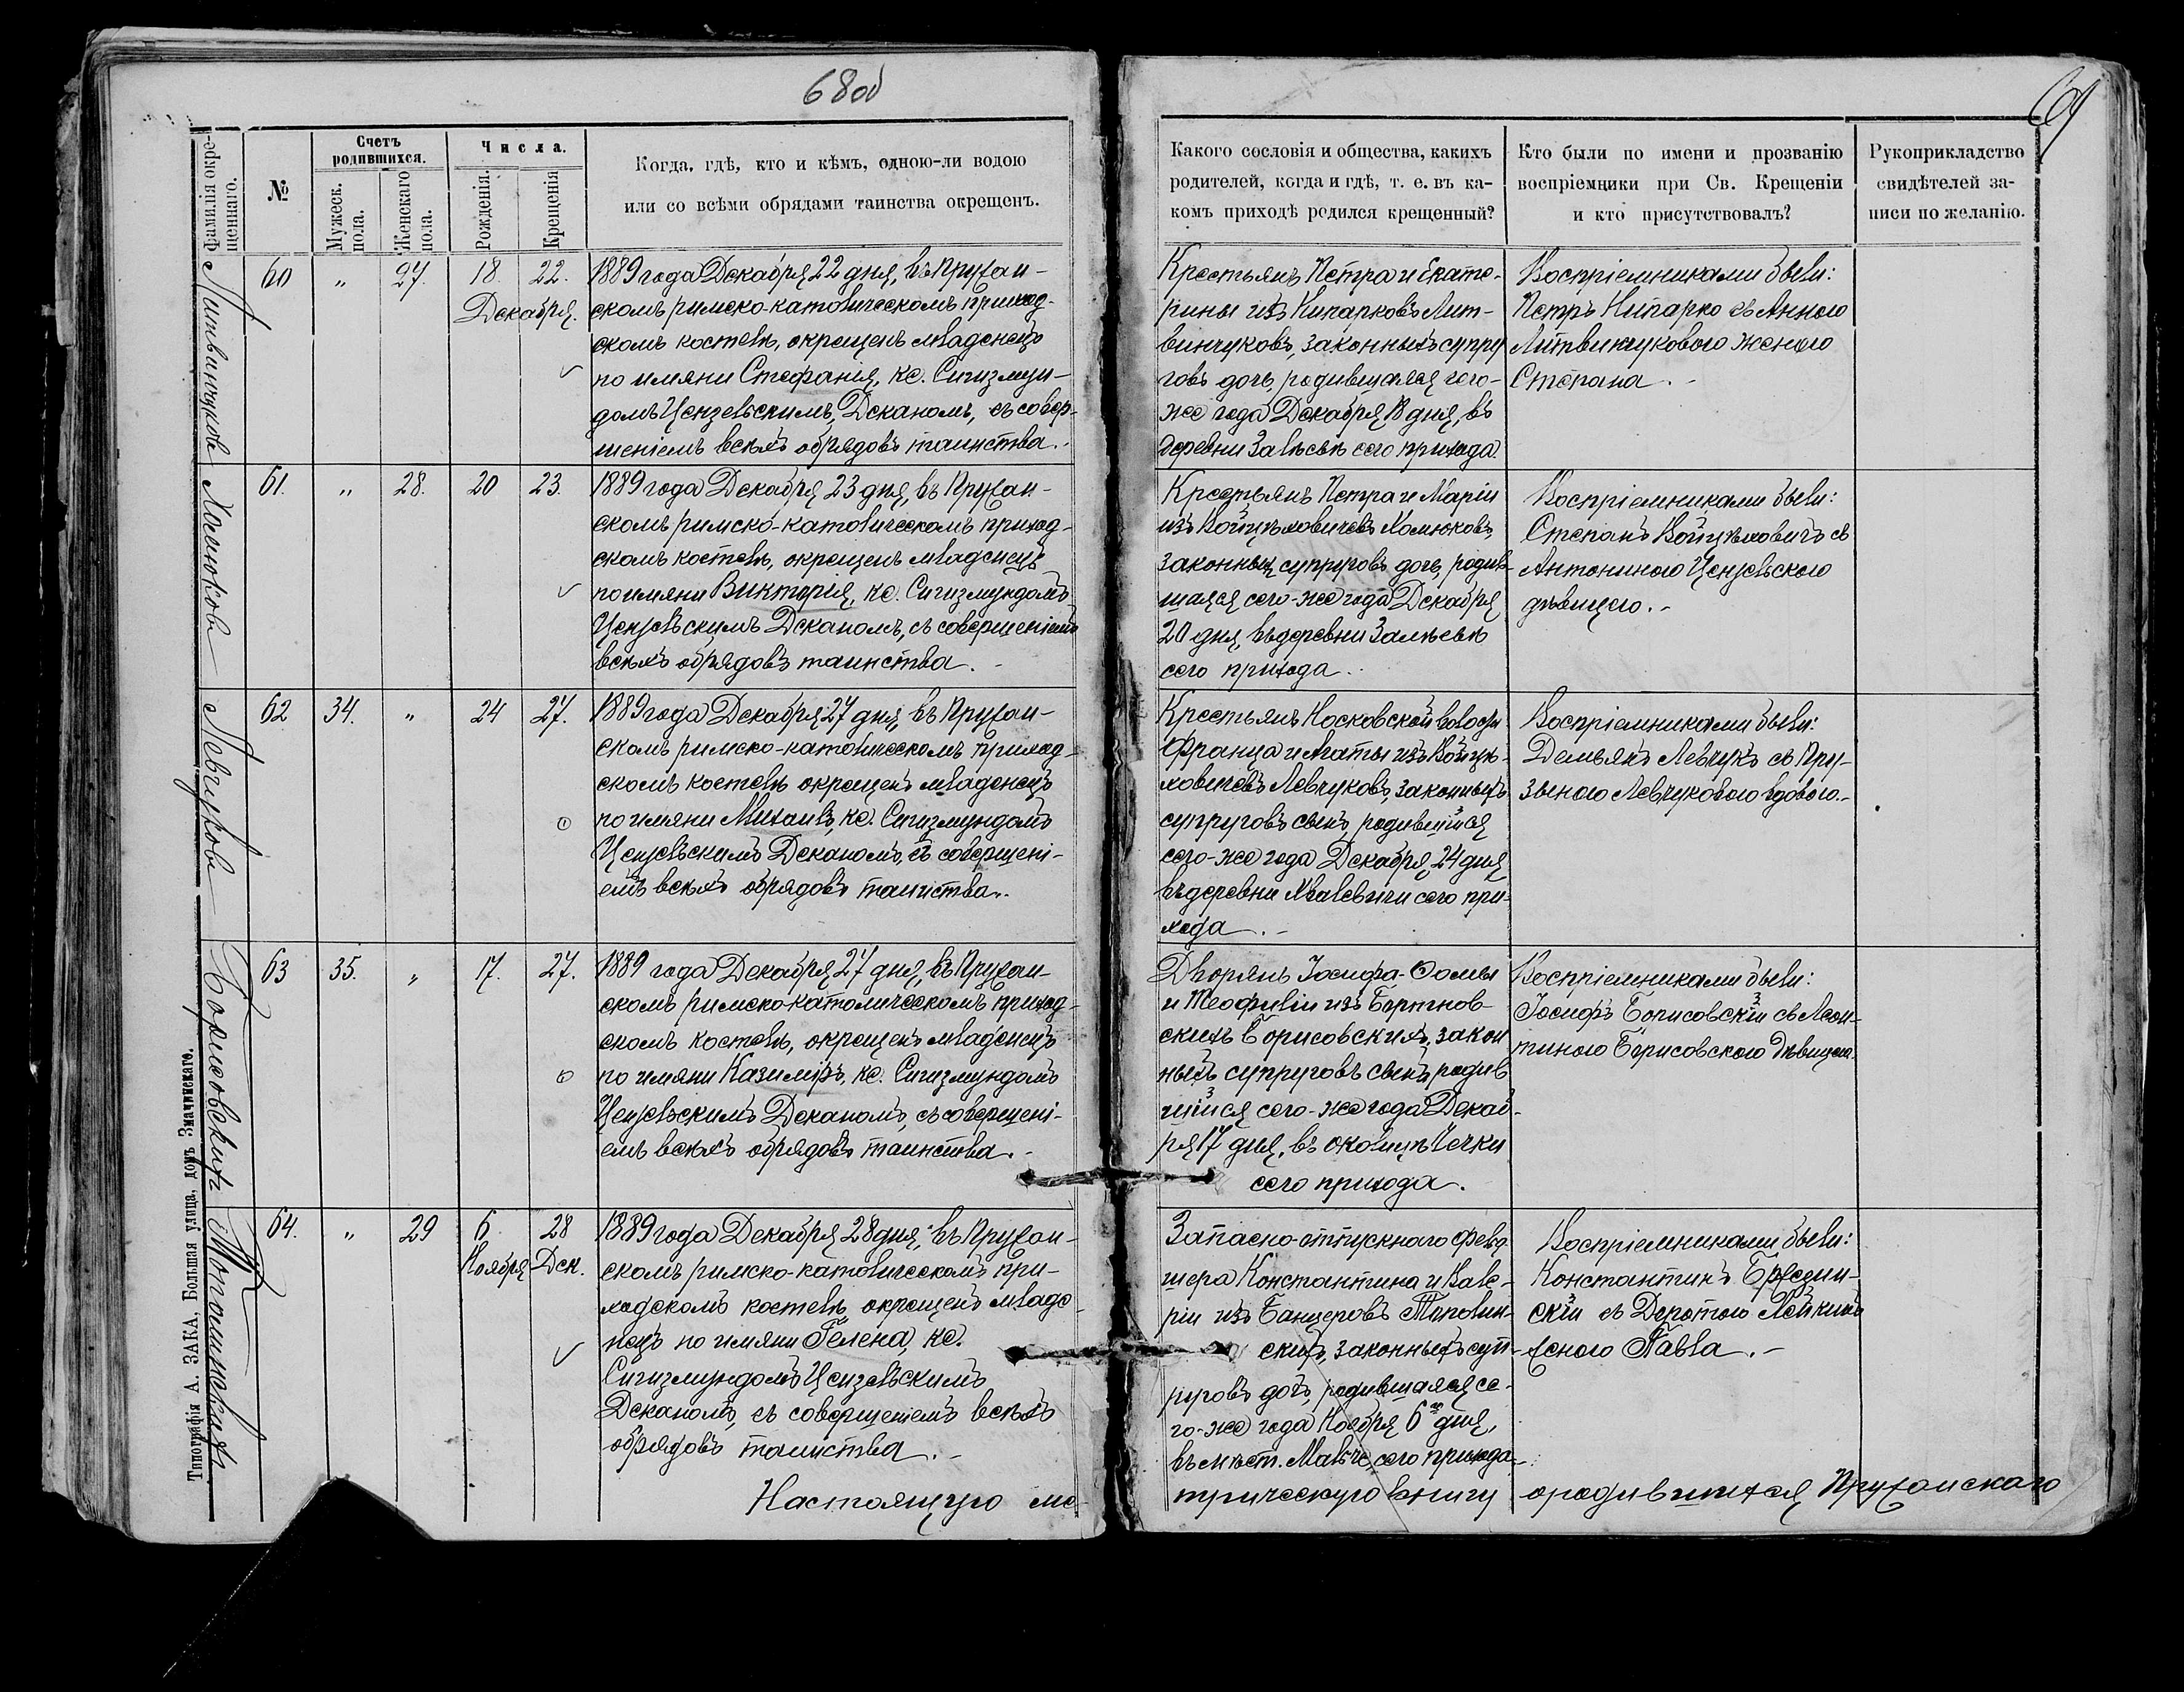 68об
69
Фамилія окрещеннаго.
№
Счетъ родившихся.
Мужеск. пола.
Женскаго пола.
Числа.
Рожденія.
Крещенія
Когда, гдѣ, кто и кѣмъ, одною-ли водою
или со всѣми обрядами таинства окрещенъ.
Какого сословія и общества, какихъ
родителей, когда и гдѣ, т. е. въ ка-
комъ приходѣ родился крещенный?
Кто были по имени и прозванію
воспріемники при Св. Крещеніи
и кто присутствовалъ?
Рукоприкладство
свидѣтелей за-
писи по желанію.
Литвинчукове
60 " 27. 18. 22.
Декабря.
1889 года Декабря 22 дня, въ Пружан-
скомъ римско-католическомъ приход-
скомъ костелѣ, окрещенъ младенецъ
по имяни Стефанія, кс. Сигизмун-
домъ Цензевскимъ, Деканомъ, съ совер-
шеніемъ всѣхъ обрядовъ таинства.
Крестьянъ Петра и Екате-
рины изъ Кипарковъ Лит-
винчуковъ, законныхъ супру
говъ дочь, родившаяся сего-
же года Декабря 18 дня, въ
деревни Залѣсьѣ сего прихода.
Воспріемниками были:
Петръ Кипарко съ Анною
Литвинчуковою женою
Степана.
Хомюкова
61. " 28. 20 23.
1889 года Декабря 23 дня, въ Пружан-
скомъ римско-католическомъ приход-
скомъ костелѣ, окрещенъ младенецъ
по имяни Викторія, кс. Сигизмундомъ
Цензевскимъ Деканомъ, съ совершеніемъ
всѣхъ обрядовъ таинства.
Крестьянъ Петра и Маріи
изъ Войцѣховичевъ Хомюковъ,
законныхъ супруговъ дочь, родив-
шаяся сего-же года Декабря
20 дня, въ деревни Залѣсьѣ
сего прихода.
Воспріемниками были:
Степанъ Войцѣховичъ съ
Антониною Цензевскою
дѣвицею.
Левчукова
62 34. " 24 27.
1889 года Декабря 27 дня, въ Пружан-
скомъ римско-католическомъ приход-
скомъ костелѣ окрещенъ младенецъ
по имяни Михаилъ, кс. Сигизмундомъ
Цензевскимъ Деканомъ, съ совершені-
емъ всѣхъ обрядовъ таинства.
Крестьянъ Носковской волости
Франца и Агаты изъ Войцѣ-
ховичевъ Левчуковъ, законныхъ
супруговъ сынъ, родившійся
сего-же года Декабря 24 дня
въ деревни Хвалевичи сего при-
хода.
Воспріемниками были:
Демьянъ Левчукъ съ Пру-
зыною Левчуковою вдовою.
Борисовскихъ
63 35. " 17. 27.
1889 года Декабря 27 дня, въ Пружан-
скомъ римско-католическомъ приход-
скомъ костелѣ, окрещенъ младенецъ
по имяни Казиміръ, кс. Сигизмундомъ
Цензевскимъ Деканомъ, съ совершені-
емъ всѣхъ обрядовъ таинства.
Дворянъ Іосифа-Ѳомы
и Теофиліи изъ
скихъ Борисовскихъ, закон
ныхъ супруговъ сынъ родив
шійся сего-же года Декаб-
ря 17 дня, въ околицѣ Чечки
сего прихода.
Воспріемниками были:
Іосифъ Борисовскій съ Леон-
тиною Борисовскою Дѣвицею.
64. " 29 6. 28
Ноября Дек.
1889 года Декабря 28 дня, въ Пружан-
скомъ римско-католическомъ при-
ходскомъ костелѣ окрещенъ младе-
нецъ по имяни Гелена, кс.
Сигизмундомъ Цензевскимъ
Деканомъ, съ совершеніемъ всѣхъ
обрядовъ таинства.
Запасно-отпускнаго фельд
шера Константина и Вале-
ріи изъ Банцеровъ
скихъ, законныхъ суп-
руговъ дочь, родившаяся се-
го-же года Ноября 6го дня,
въ мѣст. Мальче, сего прихода.
Воспріемниками были:
Константинъ Брезин-
скій съ
женою Павла.
Настоящую ме-
трическую книгу о родившихся Пружанскаго
Типографія А. ЗАКА, Большая улица, домъ Змачинскаго.